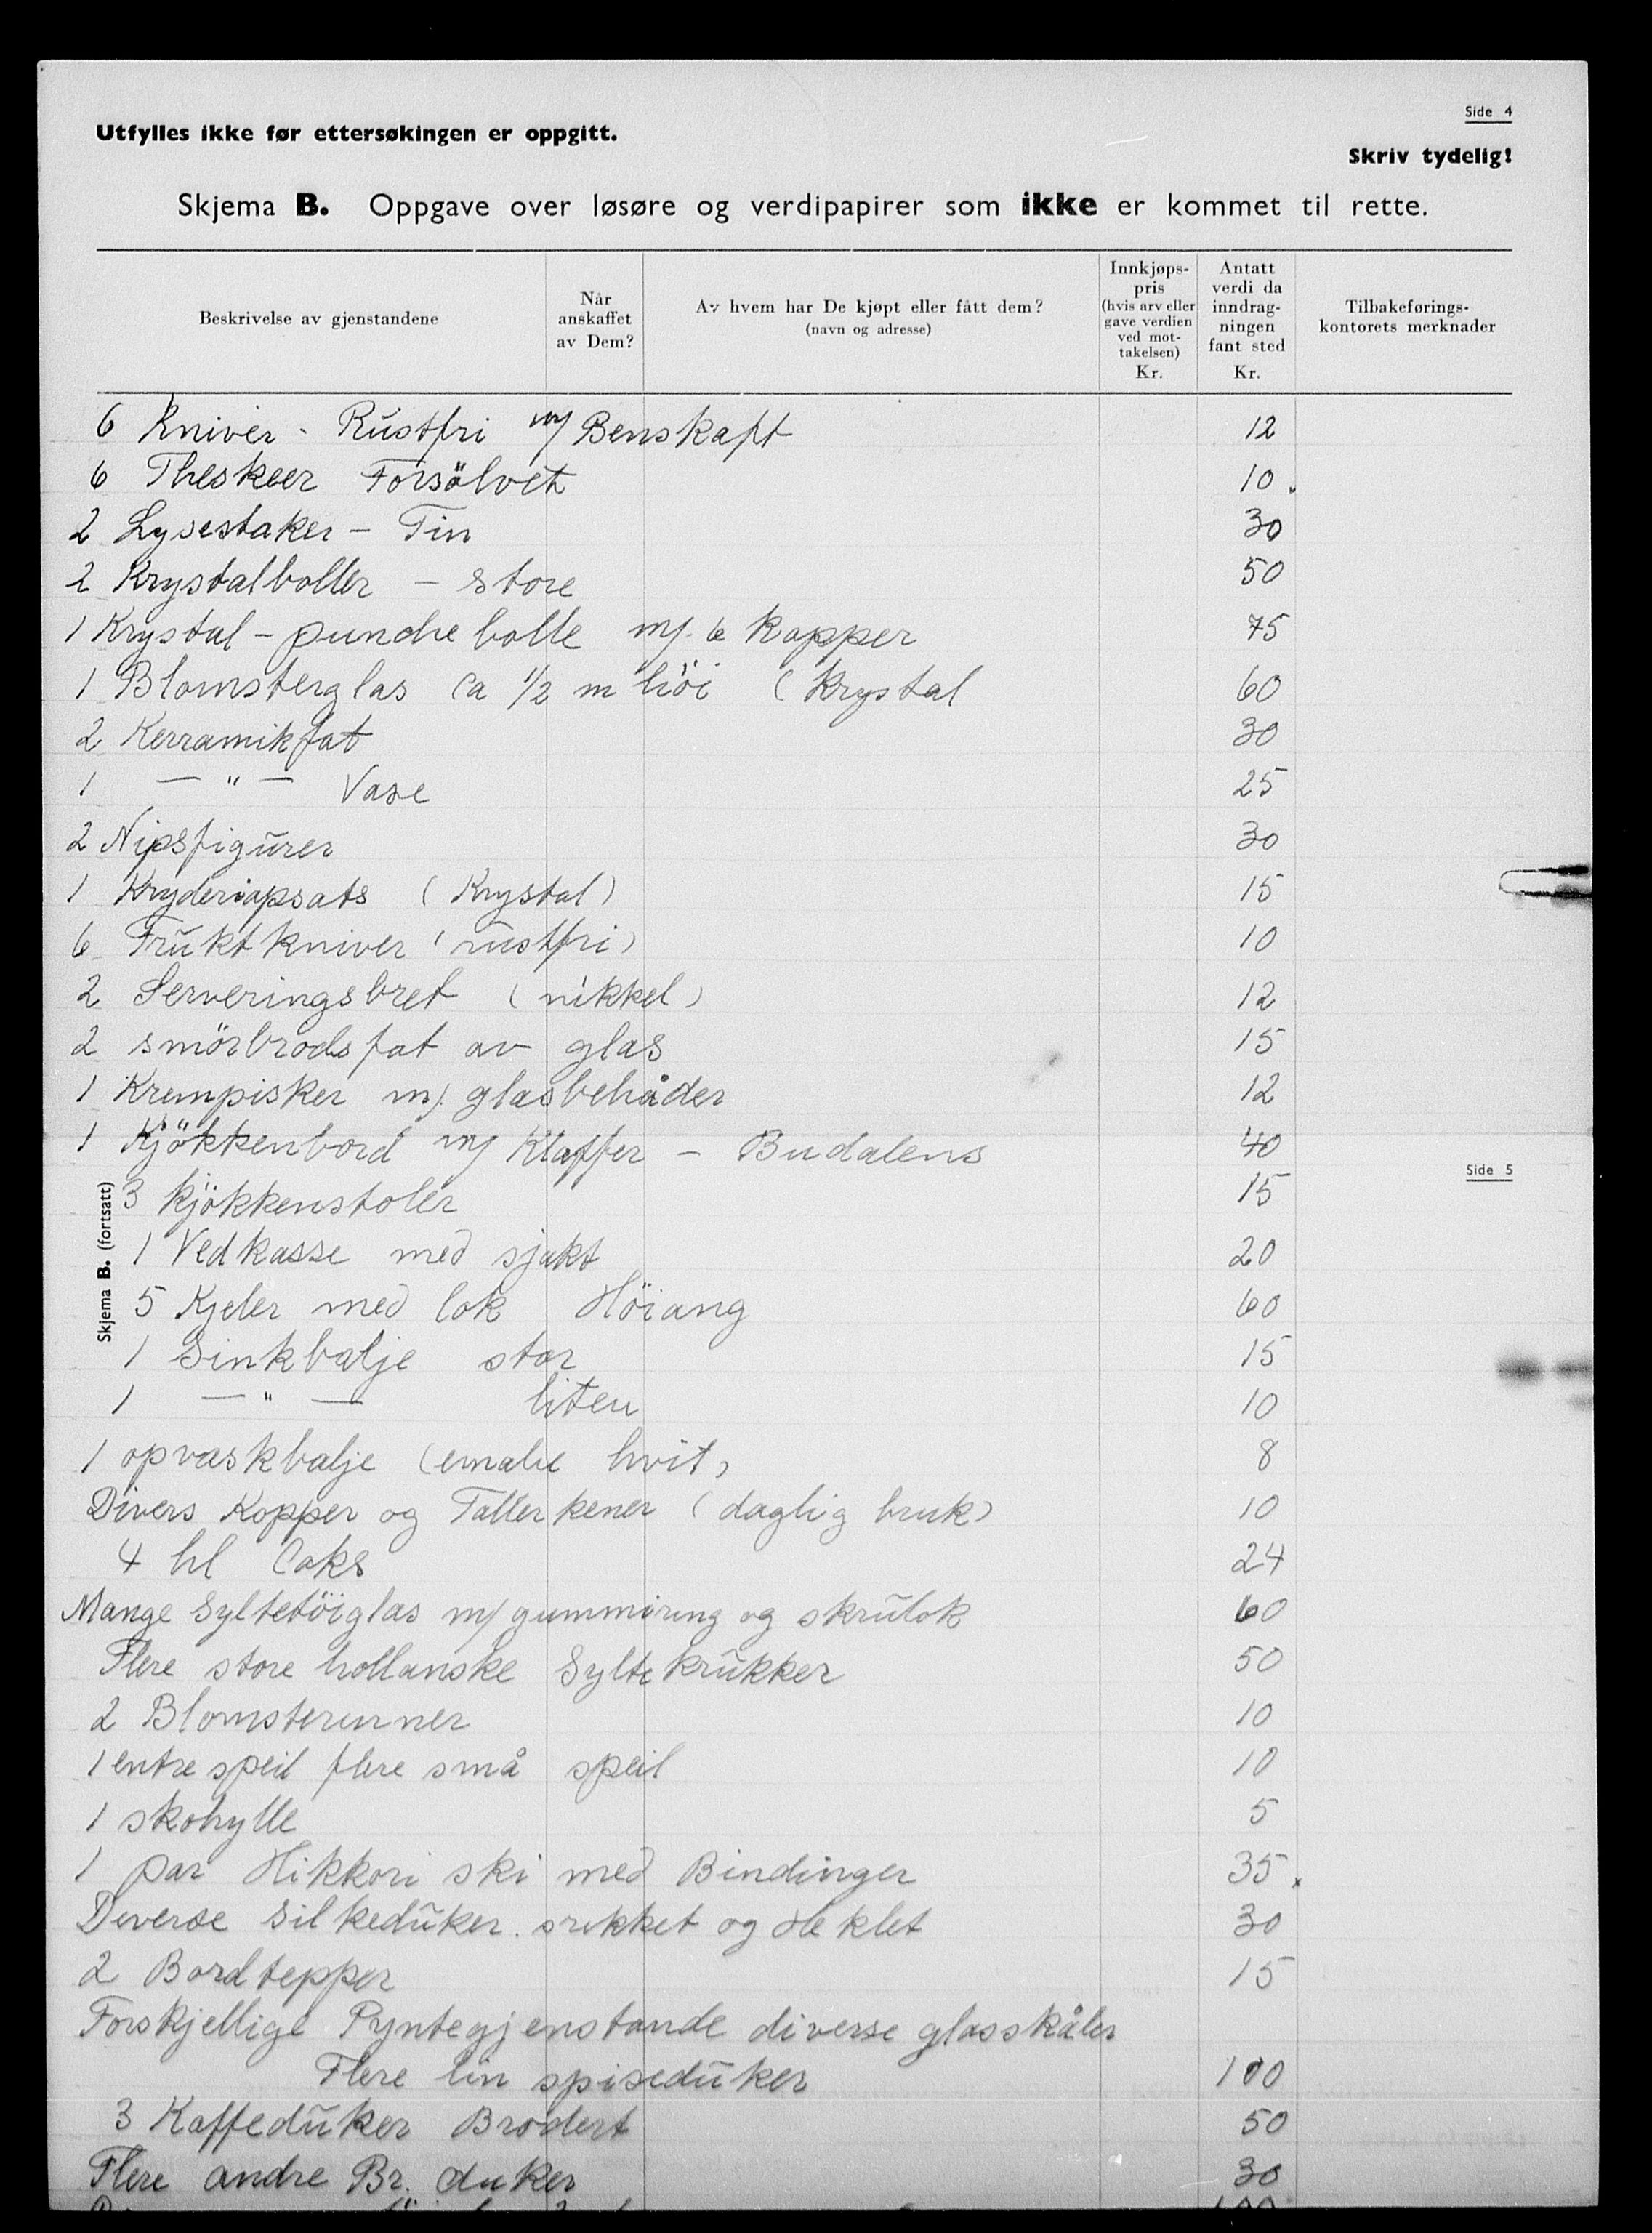 Side 4
Utfylles ikke før ettersøkingen er oppgitt.
Skriv tydelig!
Skjema B. Oppgave over løsøre og verdipapirer som ikke er kommet til rette.
Beskrivelse av gjenstandene
Når anskaffet av Dem?
Av hvem har De kjøpt eller fått dem? (navn og adresse)
Innkjøps-pris (hvis arv eller gave verdien ved mot-takelsen) Kr.
Antatt verdi da inndrag-ningen fant sted Kr.
Tilbakeførings-kontorets merknader
6 Kniver - Rustfri m/ Benskaft 12
6 Theskeer Forsölvet 10.
2 Lysestaker - Tin 30
2 Krystalboller - store 50
1 Krystal - punche bolle m/. 6 Kopper 75
1 Blomsterglas ca 1/2 m höi ( Krystal 60
2 Kerramikfat 30
1 — " — Vase 25
2 Nipsfigurer 30
1 Kryderiopsats ( Krystal ) 15
6 Fruktkniver ( rustfri ) 10
2 Serveringsbret ( nikkel ) 12
2 smörbrödsfat av glas 15
1 Krempisker m/. glasbehåder 12
1 Kjökkenbord m/ Klaffer - Budalens 40
Side 5
Skjema B. (fortsatt)
3 kjökkenstoler 15
1 Vedkasse med sjakt 20
5 Kjeler med lok Höiang 60
1 Sinkbalje stor 15
1 — " — liten 10
1 opvaskbalje (emalie hvit) 8
Divers Kopper og Tallerkener ( daglig bruk ) 10
4 hl Coks 24
Mange Syltetöiglas m/ gummiring og skrulok 60
Flere store hollanske Syltekrukker 50
2 Blomsterurner 10
1 entre speil flere små speil 10
1 skohylle 5
1 par Hikkori ski med Bindinger 35.
Diverse Silkeduker. srikket og Heklet 30
2 Bordtepper 15
Forskjellige Pyntegjenstande diverse glasskåler
Flere lin spiseduker 100
3 Kaffeduker Brodert 50
Flere andre Br. duker 30